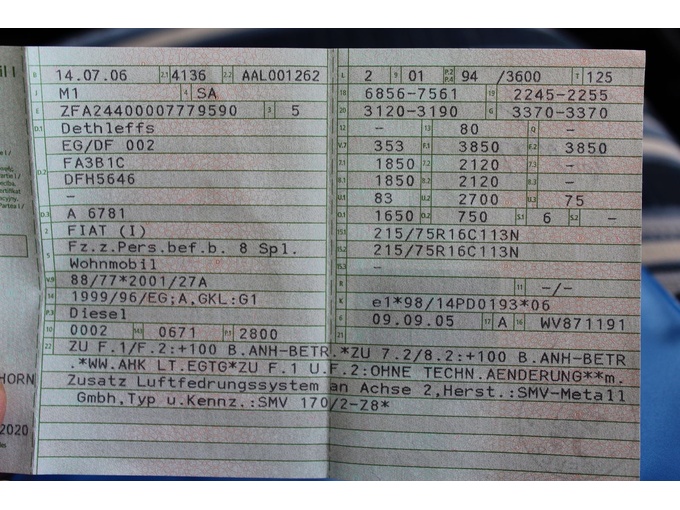 B 14.07.06 2.1 4136 2.2 AAL001262
J M1 4 SA
E ZFA24400007779590 3 5
D.1 Dethleffs
EG/DF 002
D.2 FA3B1C
DFH5646
–
D.3 A 6781
2 FIAT (I)
5 Fz.z.Pers.bef.b. 8 Spl.
Wohnmobil
V.9 88/77*2001/27A
14 1999/96/EG;A,GKL:G1
P.3 Diesel
10 0002 14.1 0671 P.1 2800
L 2 9 01 P.2 P.4 94 /3600 T 125
18 6856-7561 19 2245-2255
20 3120-3190 G 3370-3370
12 – 13 80 Q –
V.7 353 F.1 3850 F.2 3850
7.1 1850 7.2 2120 7.3 –
8.1 1850 8.2 2120 8.3 –
U.1 83 U.2 2700 U.3 75
O.1 1650 O.2 750 S.1 6 S.2 –
15.1 215/75R16C113N
15.2 215/75R16C113N
15.3 –
R 11 –/–
K e1*98/14PD0193*06
6 09.09.05 17 A 16 WV871191
21
22 ZU F.1/F.2:+100 B.ANH-BETR.*ZU 7.2/8.2:+100 B.ANH-BETR
.*WW.AHK LT.EGTG*ZU F.1 U.F.2:OHNE TECHN.AENDERUNG**m.
Zusatz Luftfedrungssystem an Achse 2,Herst.:SMV-Metall
Gmbh,Typ u.Kennz.:SMV 170/2-Z8*
HORN
2020